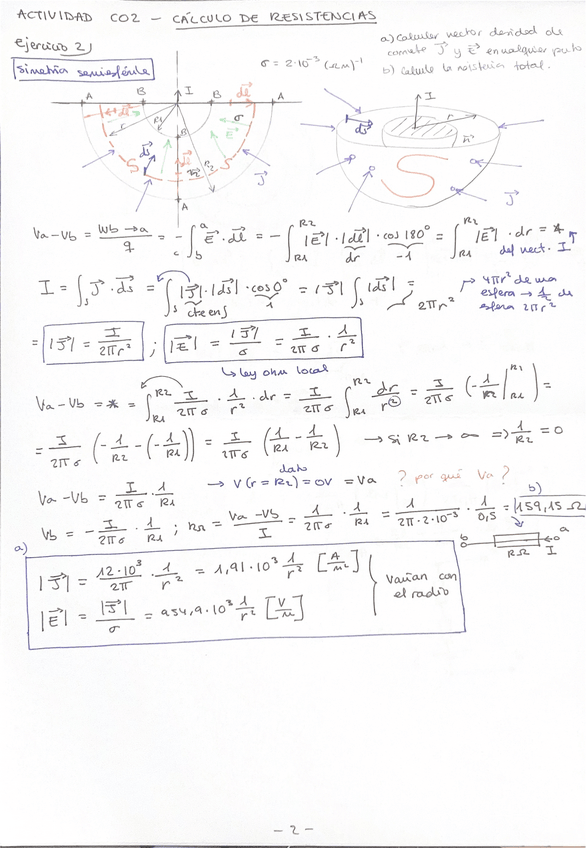 ACTIVIDAD CO2 - CÁLCULO DE RESISTENCIAS
Ejercicio 2)
a) Calcular vector densidad de
corriente J⃗ y E⃗ en cualquier punto
σ = 2·10⁻³ (Ωm)⁻¹
b) Calcule la resistencia total.
Simetría semiesférica
A dl⃗ B I B dl⃗ A
r R1 σ
S ds⃗ B E⃗ S
R2 J⃗
A
I
ds⃗ r
S J⃗
Va-Vb = Wb→a / q = -∫_b^a E⃗·dl⃗ = -∫_R1^R2 |E⃗|·|dl⃗|·cos 180° = ∫_R1^R2 |E⃗|·dr = *
dr -1 def vect. I
I = ∫_s J⃗·ds⃗ = ∫_s |J⃗|·|ds⃗|·cos0° = |J⃗| ∫_s |ds⃗| =
cte en s 1 2πr²
→ 4πr² de una
esfera → 1/2 de
esfera 2πr²
= |J⃗| = I / 2πr² ; |E⃗| = |J⃗| / σ = I / 2πσ · 1 / r²
↳ ley ohm local
Va-Vb = * = ∫_R1^R2 I / 2πσ · 1 / r² · dr = I / 2πσ ∫_R1^R2 dr / r² = I / 2πσ (-1 / R2 |_R1^R1) =
= I / 2πσ (-1 / R2 - (-1 / R1)) = I / 2πσ (1 / R1 - 1 / R2) → si R2 → ∞ ⇒ 1 / R2 = 0
dato
Va-Vb = I / 2πσ · 1 / R1 → V(r=R2) = 0V = Va ? por qué Va ?
Vb = -I / 2πσ · 1 / R1 ; = Va-Vb / I = 1 / 2πσ · 1 / R1 = 1 / 2π·2·10⁻³ · 1 / 0,5 = 159,15 Ω
b)
b RΩ I a
a)
|J⃗| = 12·10³ / 2π · 1 / r² = 1,91·10³ 1 / r² [A / m²]
|E⃗| = |J⃗| / σ = 954,9·10³ 1 / r² [V / m]
varían con
el radio
- 2 -